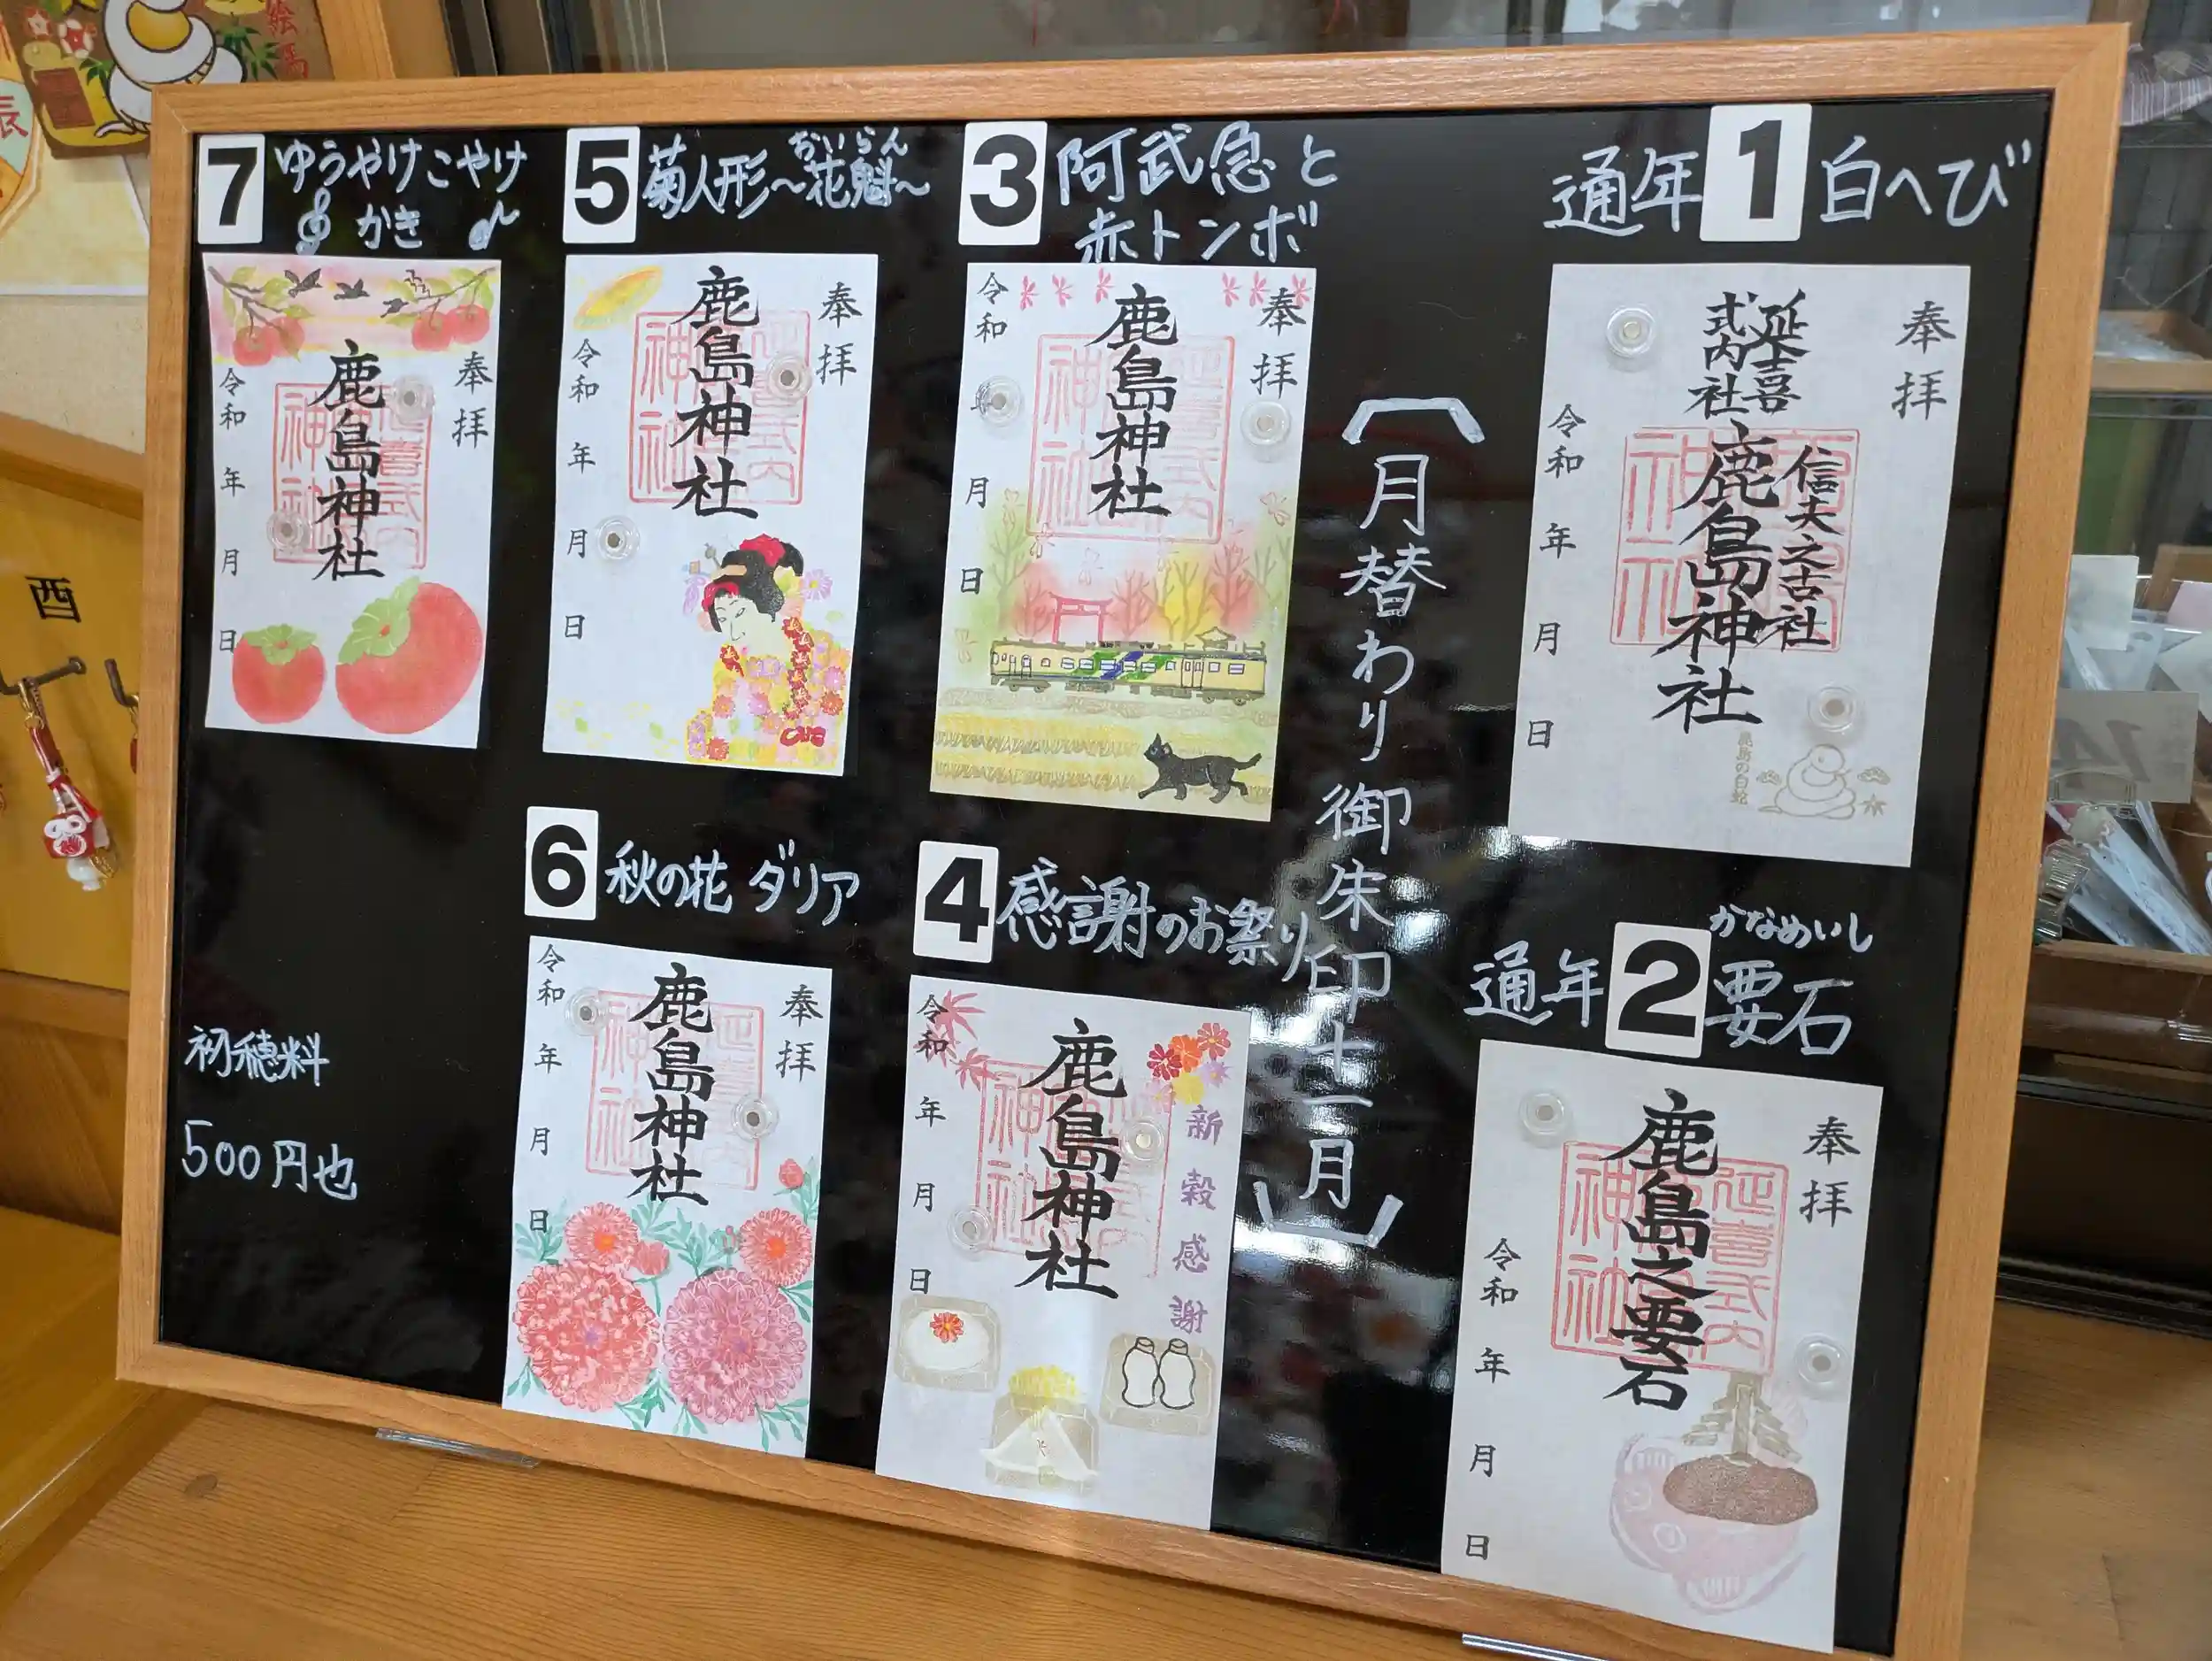 通年 1 白へび
奉拝
延喜
式内社
信夫之古社
鹿島神社
令和 年 月 日
鹿島の白蛇
かなめいし
通年 2 要石
奉拝
延喜式内
鹿島之要石
令和 年 月 日
〔月替わり御朱印十一月〕
3 阿武急と
赤トンボ
奉拝
延喜式内
鹿島神社
令和 年 月 日
4 感謝のお祭り
奉拝
新穀感謝
鹿島神社
令和 年 月 日
おいらん
5 菊人形〜花魁〜
奉拝
延喜式内
鹿島神社
令和 年 月 日
6 秋の花 ダリア
奉拝
鹿島神社
令和 年 月 日
7 ゆうやけこやけ
かき
奉拝
延喜式内
鹿島神社
令和 年 月 日
初穂料
500円也
絵馬
辰
酉